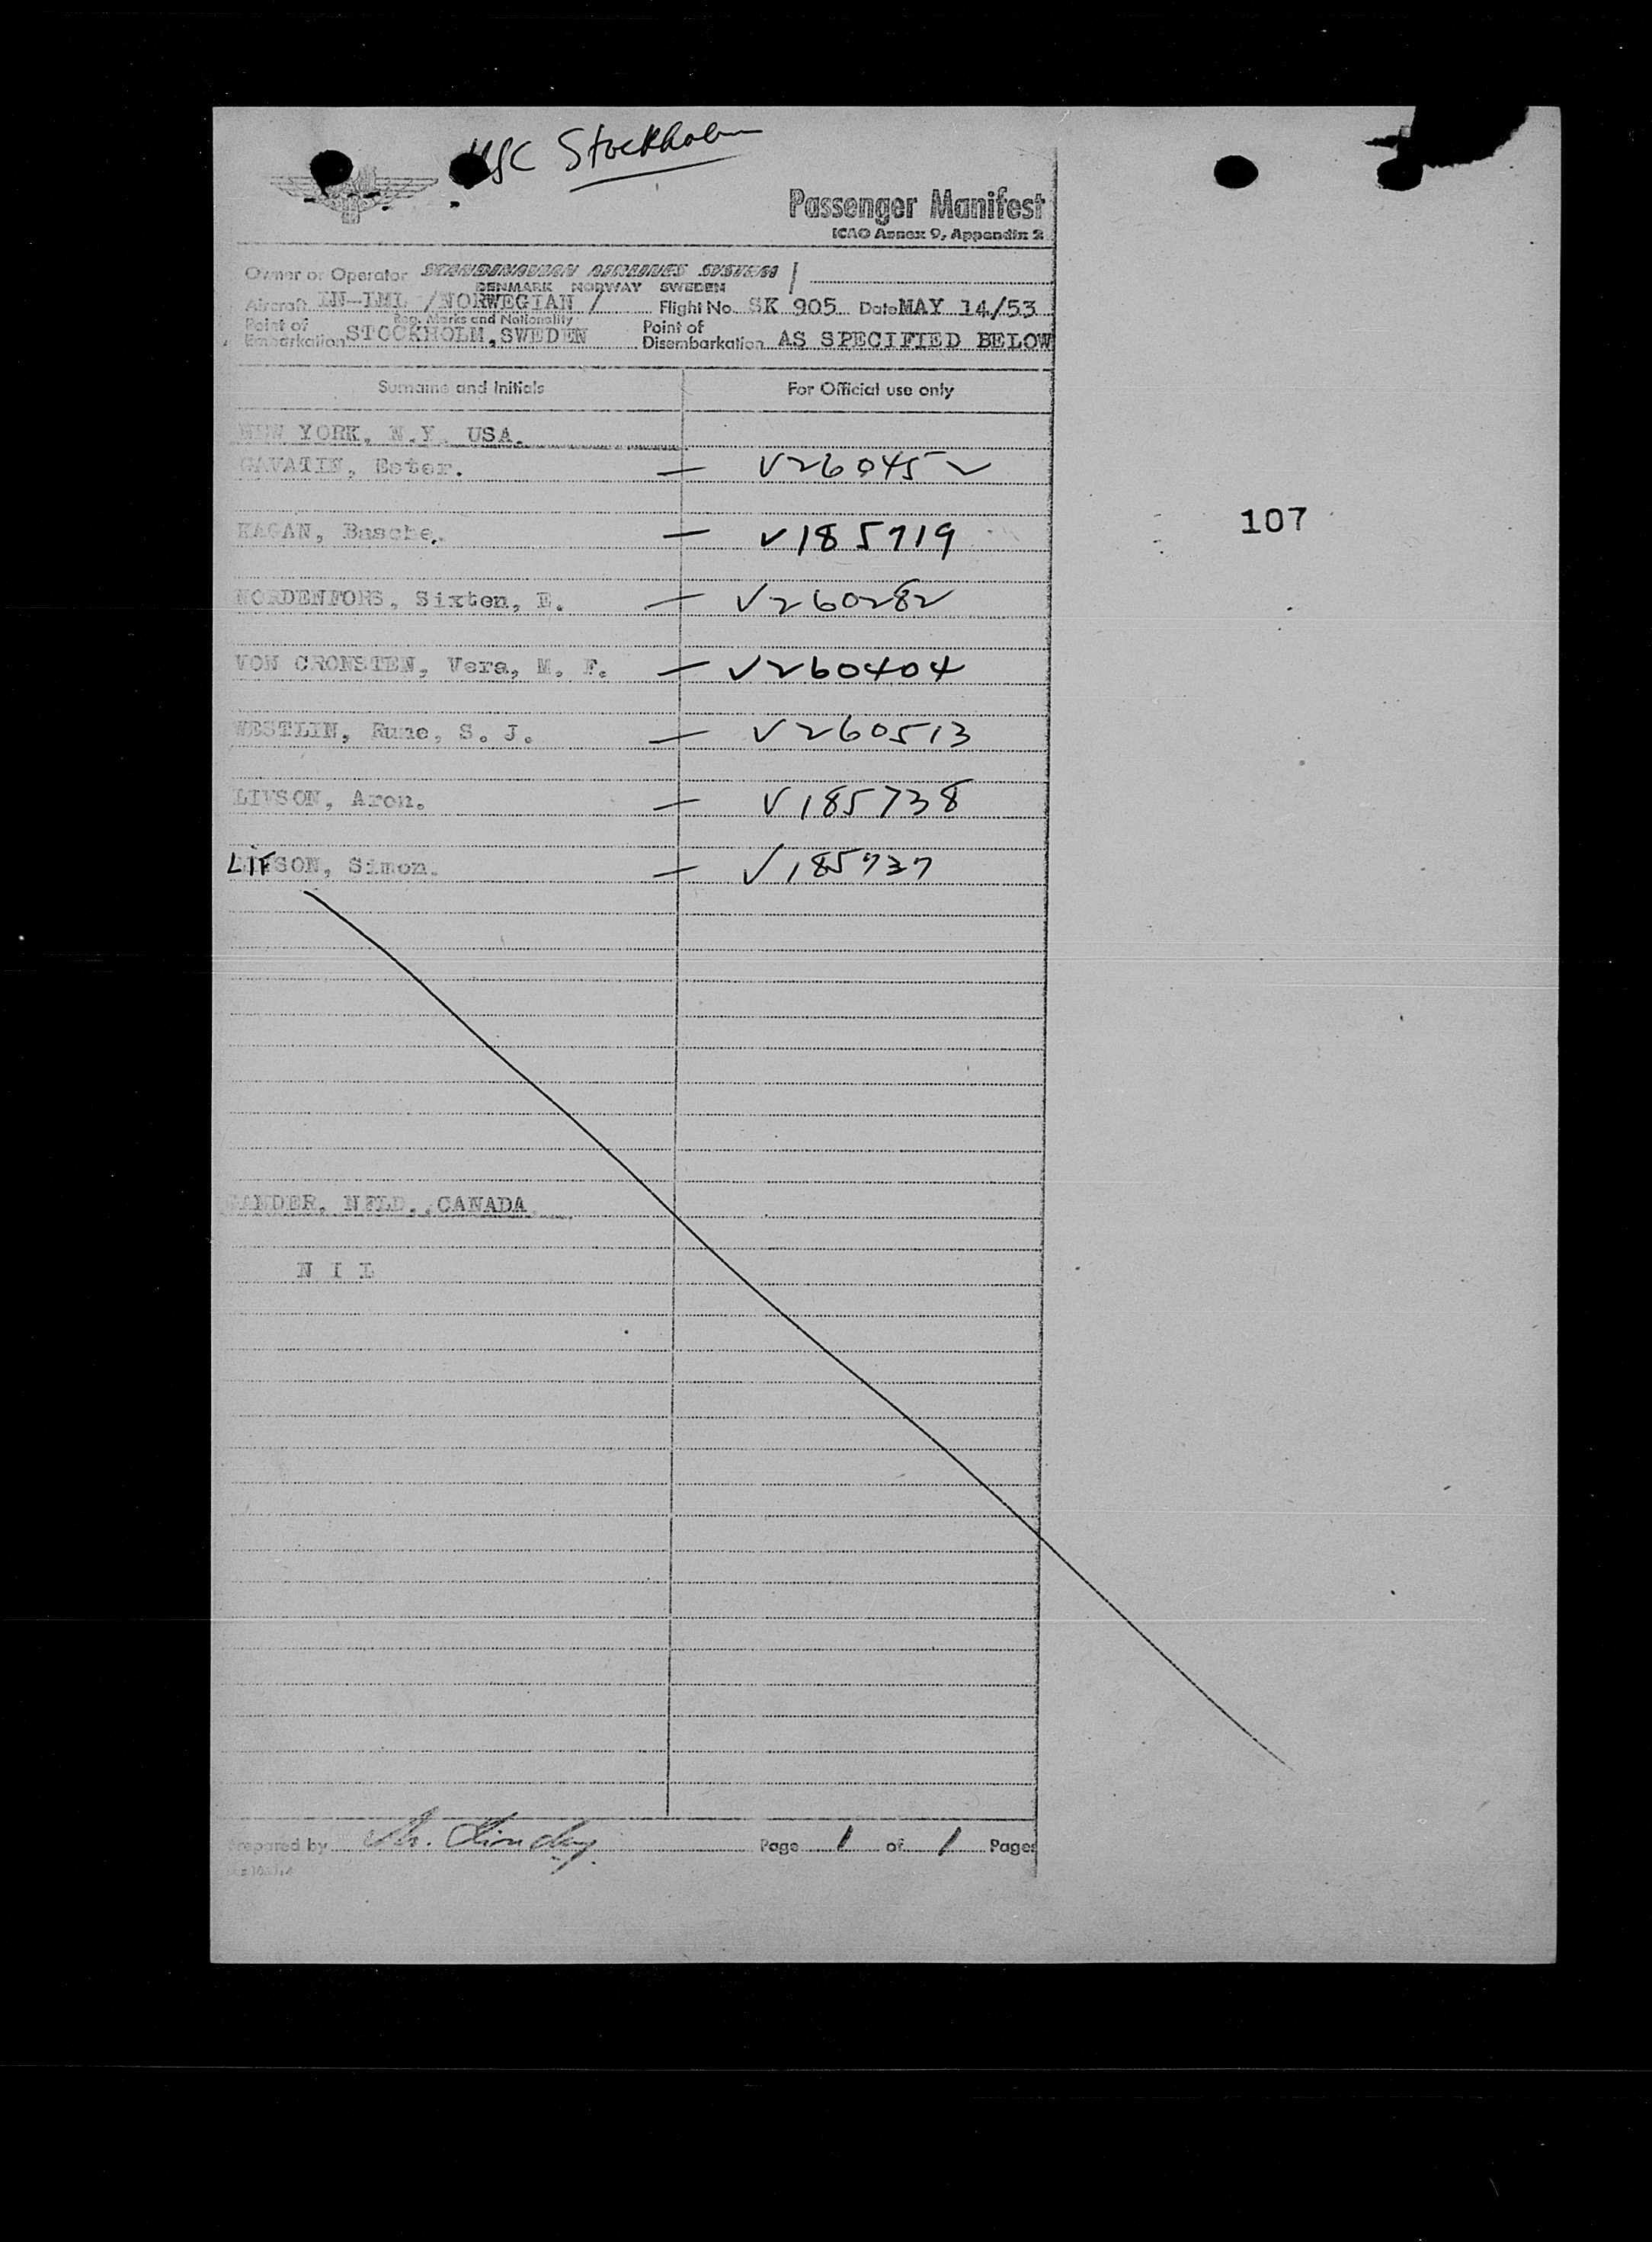 Stockholm
Passenger Manifest
ICAO Annex 9, Appendix 2
Owner or Operator SCANDINAVIAN AIRLINES SYSTEM /
DENMARK NORWAY SWEDEN
Aircraft /NORWEGIAN / Flight No. SK 905 Date MAY 14/53
Reg. Marks and Nationality
Point of Embarkation STOCKHOLM, SWEDEN Point of Disembarkation AS SPECIFIED BELOW
Surname and Initials For Official use only
NEW YORK, N.Y. USA.
GAVATIN, Ester. — V260452
KAGAN, Basche. — V185719
NORDENFORS, Sixten, E. — V260282
107
VON CRONSTEN, Vera, M. F. — V260404
WESTLIN, Rune, S. J. — V260513
LIVSON, Aron. — V185738
LIFSON, Simon. — V185737
GANDER, NFLD., CANADA
N I L
Prepared by Page 1 of 1 Pages